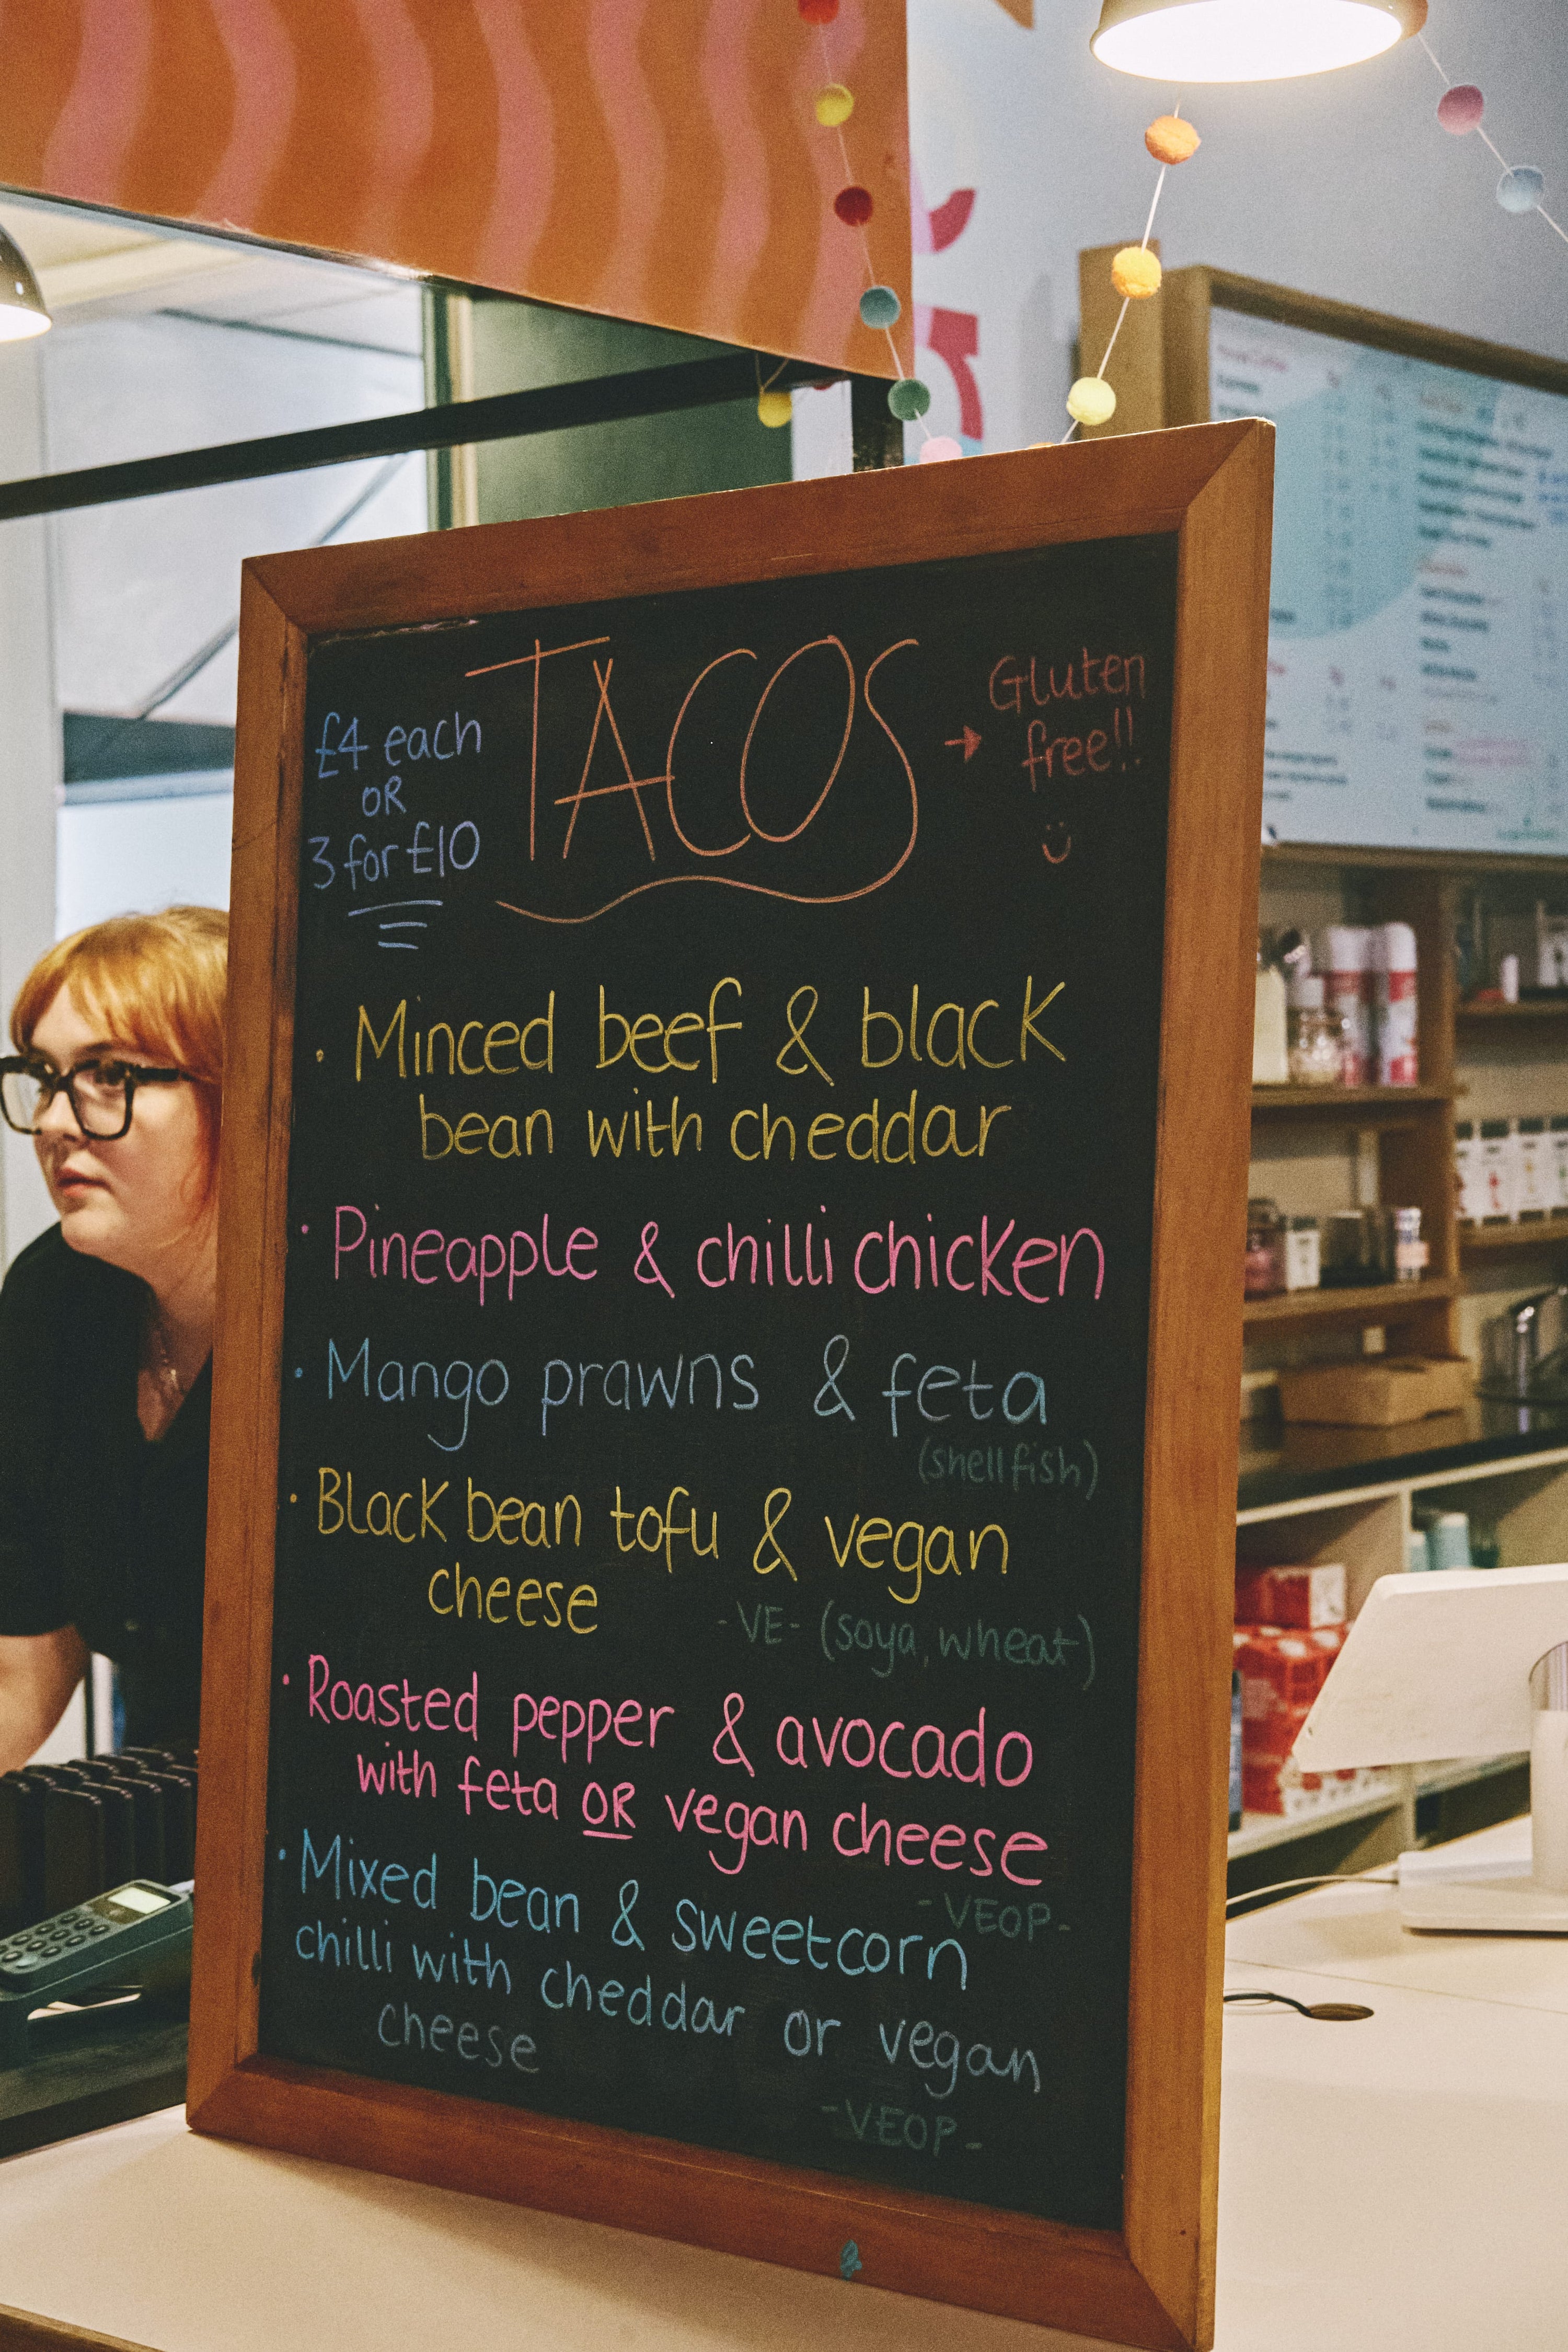 TACOS
£4 each
OR
3 for £10
→ Gluten
free!!
· Minced beef & black
bean with cheddar
· Pineapple & chilli chicken
· Mango prawns & feta
(shellfish)
· Black bean tofu & vegan
cheese
-VE- (soya, wheat)
· Roasted pepper & avocado
with feta OR vegan cheese
-VEOP-
· Mixed bean & sweetcorn
chilli with cheddar or vegan
cheese
-VEOP-